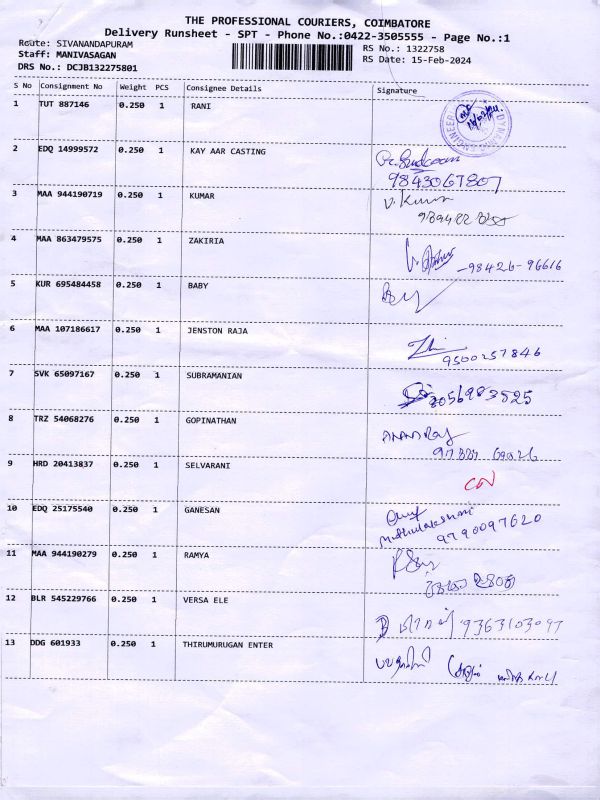 THE PROFESSIONAL COURIERS, COIMBATORE
Delivery Runsheet - SPT - Phone No.:0422-3505555 - Page No.:1
Route: SIVANANDAPURAM
RS No.: 1322758
Staff: MANIVASAGAN
RS Date: 15-Feb-2024
DRS No.: DCJB132275801
S No Consignment No Weight PCS Consignee Details Signature
1 TUT 887146 0.250 1 RANI
2 EDQ 14999572 0.250 1 KAY AAR CASTING
9843067807
3 MAA 944190719 0.250 1 KUMAR V. Kumar
4 MAA 863479575 0.250 1 ZAKIRIA
-98426-96616
5 KUR 695484458 0.250 1 BABY
6 MAA 107186617 0.250 1 JENSTON RAJA
9500257846
7 SVK 65097167 0.250 1 SUBRAMANIAN
8056983525
8 TRZ 54068276 0.250 1 GOPINATHAN
ANANDRAJ
9 HRD 20413837 0.250 1 SELVARANI
10 EDQ 25175540 0.250 1 GANESAN
Muthulakshmi 9790097620
11 MAA 944190279 0.250 1 RAMYA
12 BLR 545229766 0.250 1 VERSA ELE
9363103097
13 DDG 601933 0.250 1 THIRUMURUGAN ENTER